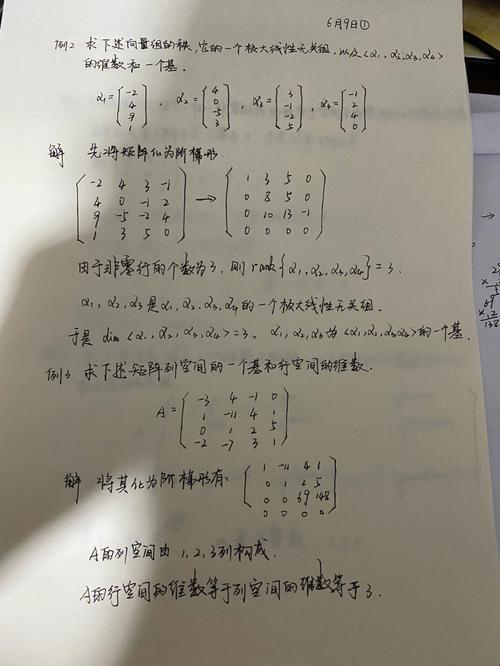 6月9日①
例2 求下述向量组的秩,它的一个极大线性无关组,以及<α₁,α₂,α₃,α₄>
的维数和一个基.
α₁= (-2 4 9 1) , α₂= (4 0 -5 3) , α₃= (3 -1 -2 5) , α₄= (-1 2 4 0)
解 先将矩阵化为阶梯形.
-2 4 3 -1 → 1 3 5 0
4 0 -1 2 0 8 5 0
9 -5 -2 4 0 10 13 -1
1 3 5 0 0 0 0 0
由于非零行的个数为3, 则 rank{α₁,α₂,α₃,α₄}=3.
α₁,α₂,α₃是α₁,α₂,α₃,α₄的一个极大线性无关组.
于是 dim<α₁,α₂,α₃,α₄>=3, α₁,α₂,α₃为<α₁,α₂,α₃,α₄>的一个基.
例3 求下述矩阵列空间的一个基和行空间的维数.
A=
-3 4 -1 0
1 -11 4 1
0 1 2 5
-2 -7 3 1
解 将其化为阶梯形有
1 -11 4 1
0 1 2 5
0 0 69 148
0 0 0 0
A的列空间由1,2,3列构成.
A的行空间的维数等于列空间的维数等于3.